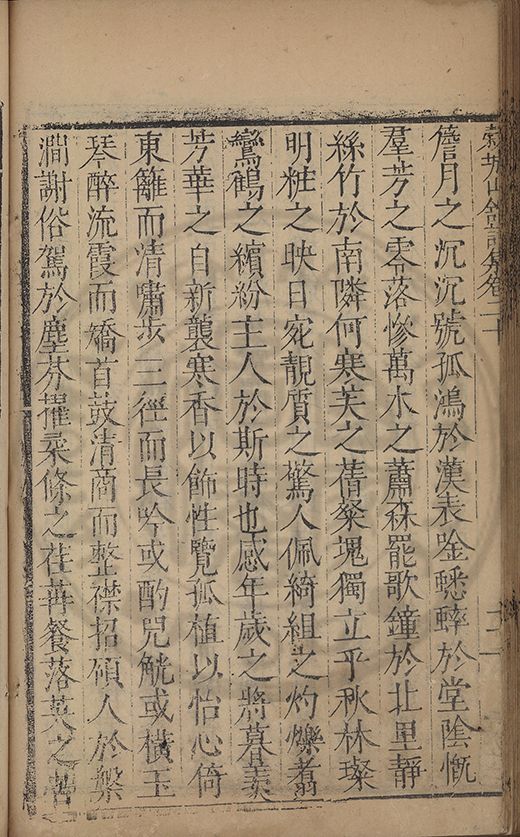 城山館詩集卷二十 十一
簷月之沉沉號孤鴻於漢表唫蟋蟀於堂陰慨
羣芳之零落慘萬木之蕭森罷歌鐘於北里靜
絲竹於南隣何寒芙之蒨粲塊獨立乎秋林璨
明粧之映日宛靚質之驚人佩綺組之灼爍翥
鸞鶴之繽紛主人於斯時也感年歲之將暮羨
芳華之自新襲寒香以飾性覽孤植以怡心倚
東籬而清嘯步三徑而長吟或酌兕觥或橫玉
琴醉流霞而矯首鼓清商而整襟招碩人於槃
澗謝俗駕於塵芬擢桑條之荏苒餐落英之